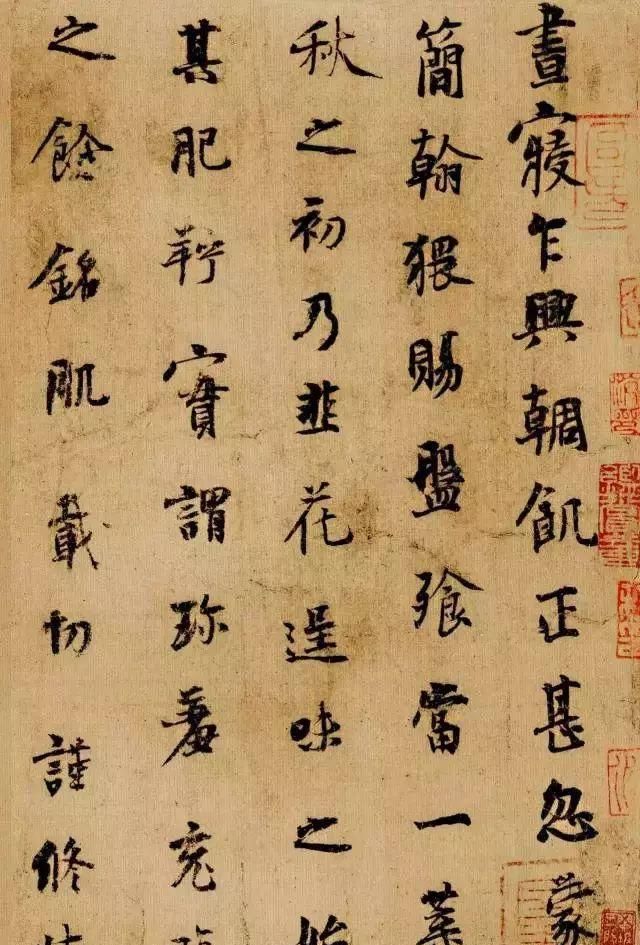 晝寢乍興輖飢正甚忽蒙
簡翰猥賜盤飧當一葉
秋之初乃韭花逞味之始
其肥羜實謂珍羞充
之餘銘肌載切謹修